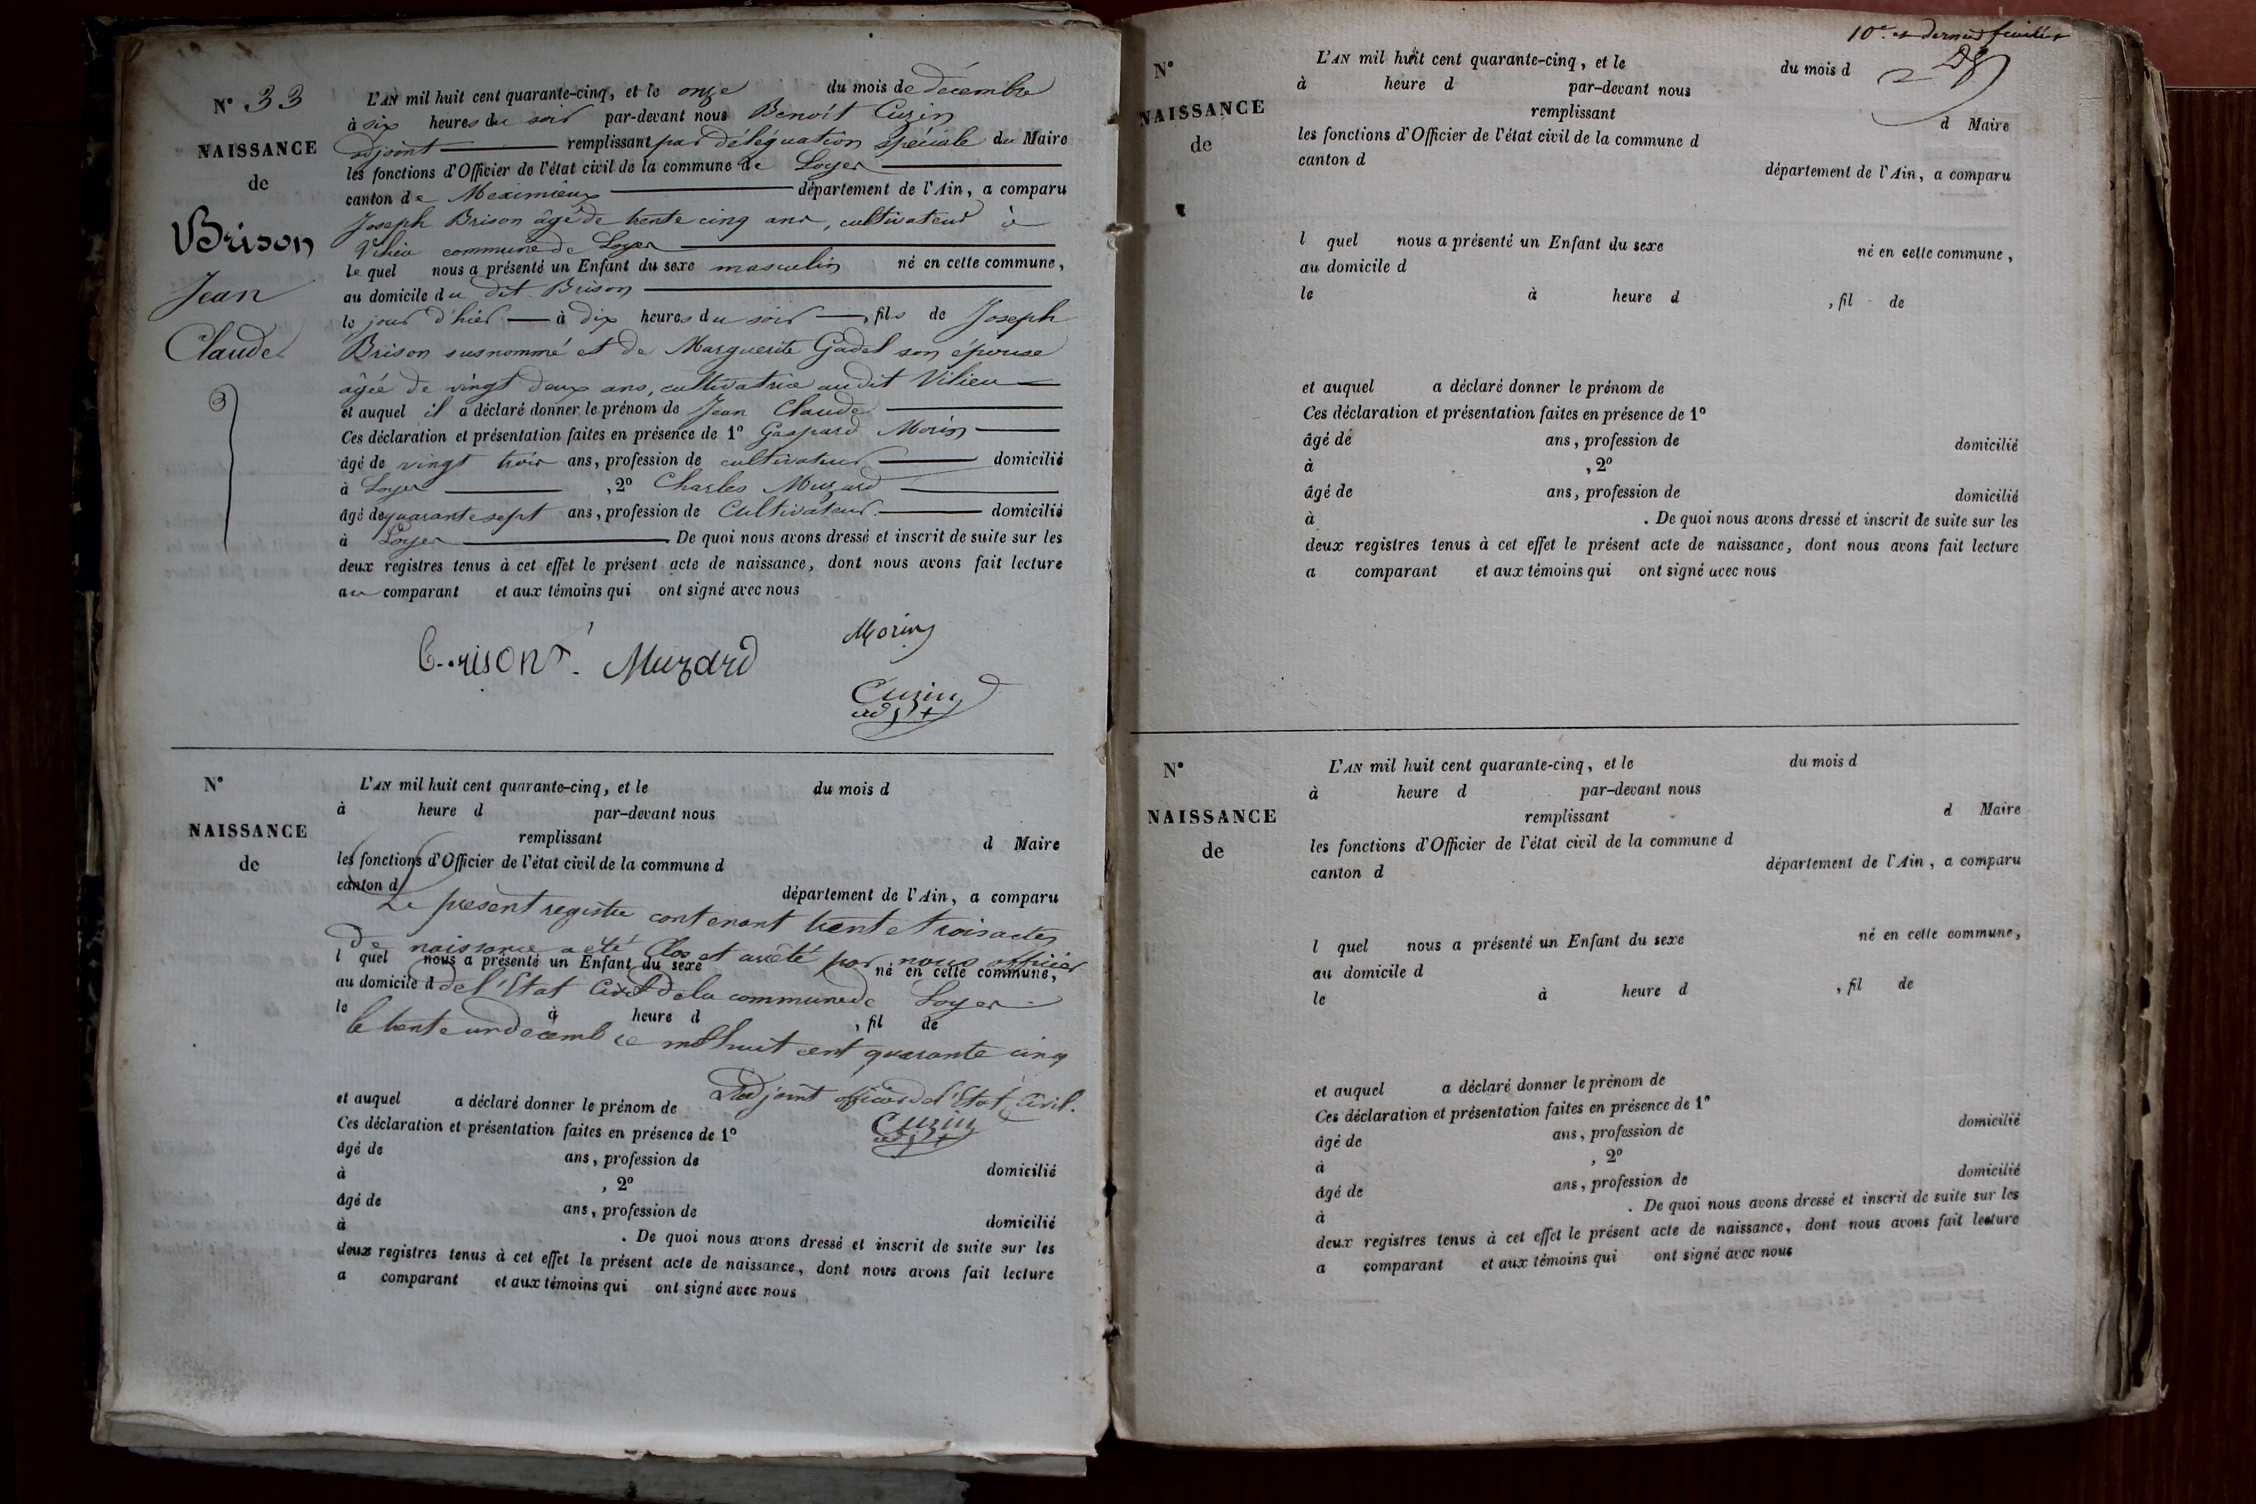 N° 33
NAISSANCE
de
Brison
Jean
Claude
L'AN mil huit cent quarante-cinq, et le onze du mois de décembre
à six heures du soir par-devant nous Benoît Cuzin
adjoint remplissant par déléguation spéciale du Maire
les fonctions d'Officier de l'état civil de la commune de Loyes
canton de Meximieux département de l'Ain, a comparu
Joseph Brison âgé de trente cinq ans, cultivateur à
Vilieu commune de Loyes
le quel nous a présenté un Enfant du sexe masculin né en cette commune,
au domicile du dit Brison
le jour d'hier à dix heures du soir, fils de Joseph
Brison susnommé et de Marguerite Gadel son épouse
âgée de vingt deux ans, cultivatrice audit Vilieu
et auquel il a déclaré donner le prénom de Jean Claude
Ces déclaration et présentation faites en présence de 1° Gaspard Morin
âgé de vingt trois ans, profession de cultivateur domicilié
à Loyes , 2° Charles Muzard
âgé de quarante sept ans, profession de Cultivateur domicilié
à Loyes . De quoi nous avons dressé et inscrit de suite sur les
deux registres tenus à cet effet le présent acte de naissance, dont nous avons fait lecture
au comparant et aux témoins qui ont signé avec nous
Morin
Muzard
Cuzin
adjt
N°
NAISSANCE
de
L'AN mil huit cent quarante-cinq, et le du mois d
à heure d par-devant nous
remplissant d Maire
les fonctions d'Officier de l'état civil de la commune d
canton d département de l'Ain, a comparu
Le présent registre contenant trente trois actes
de naissance a été clos et arrêté par nous officier
l quel nous a présenté un Enfant du sexe né en cette commune,
au domicile d
de l'Etat Civil de la commune de Loyes
le à heure d , fil de
le trente un décembre mil huit cent quarante cinq
L'adjoint officier de l'Etat Civil.
et auquel a déclaré donner le prénom de
Cuzin
adjt
Ces déclaration et présentation faites en présence de 1°
âgé de ans, profession de domicilié
à , 2°
âgé de ans, profession de domicilié
à . De quoi nous avons dressé et inscrit de suite sur les
deux registres tenus à cet effet le présent acte de naissance, dont nous avons fait lecture
a comparant et aux témoins qui ont signé avec nous
10e et dernier feuillet
N°
NAISSANCE
de
L'AN mil huit cent quarante-cinq, et le du mois d
à heure d par-devant nous
remplissant d Maire
les fonctions d'Officier de l'état civil de la commune d
canton d département de l'Ain, a comparu
l quel nous a présenté un Enfant du sexe né en cette commune,
au domicile d
le à heure d , fil de
et auquel a déclaré donner le prénom de
Ces déclaration et présentation faites en présence de 1°
âgé de ans, profession de domicilié
à , 2°
âgé de ans, profession de domicilié
à . De quoi nous avons dressé et inscrit de suite sur les
deux registres tenus à cet effet le présent acte de naissance, dont nous avons fait lecture
a comparant et aux témoins qui ont signé avec nous
N°
NAISSANCE
de
L'AN mil huit cent quarante-cinq, et le du mois d
à heure d par-devant nous
remplissant d Maire
les fonctions d'Officier de l'état civil de la commune d
canton d département de l'Ain, a comparu
l quel nous a présenté un Enfant du sexe né en cette commune,
au domicile d
le à heure d , fil de
et auquel a déclaré donner le prénom de
Ces déclaration et présentation faites en présence de 1°
âgé de ans, profession de domicilié
à , 2°
âgé de ans, profession de domicilié
à . De quoi nous avons dressé et inscrit de suite sur les
deux registres tenus à cet effet le présent acte de naissance, dont nous avons fait lecture
a comparant et aux témoins qui ont signé avec nous